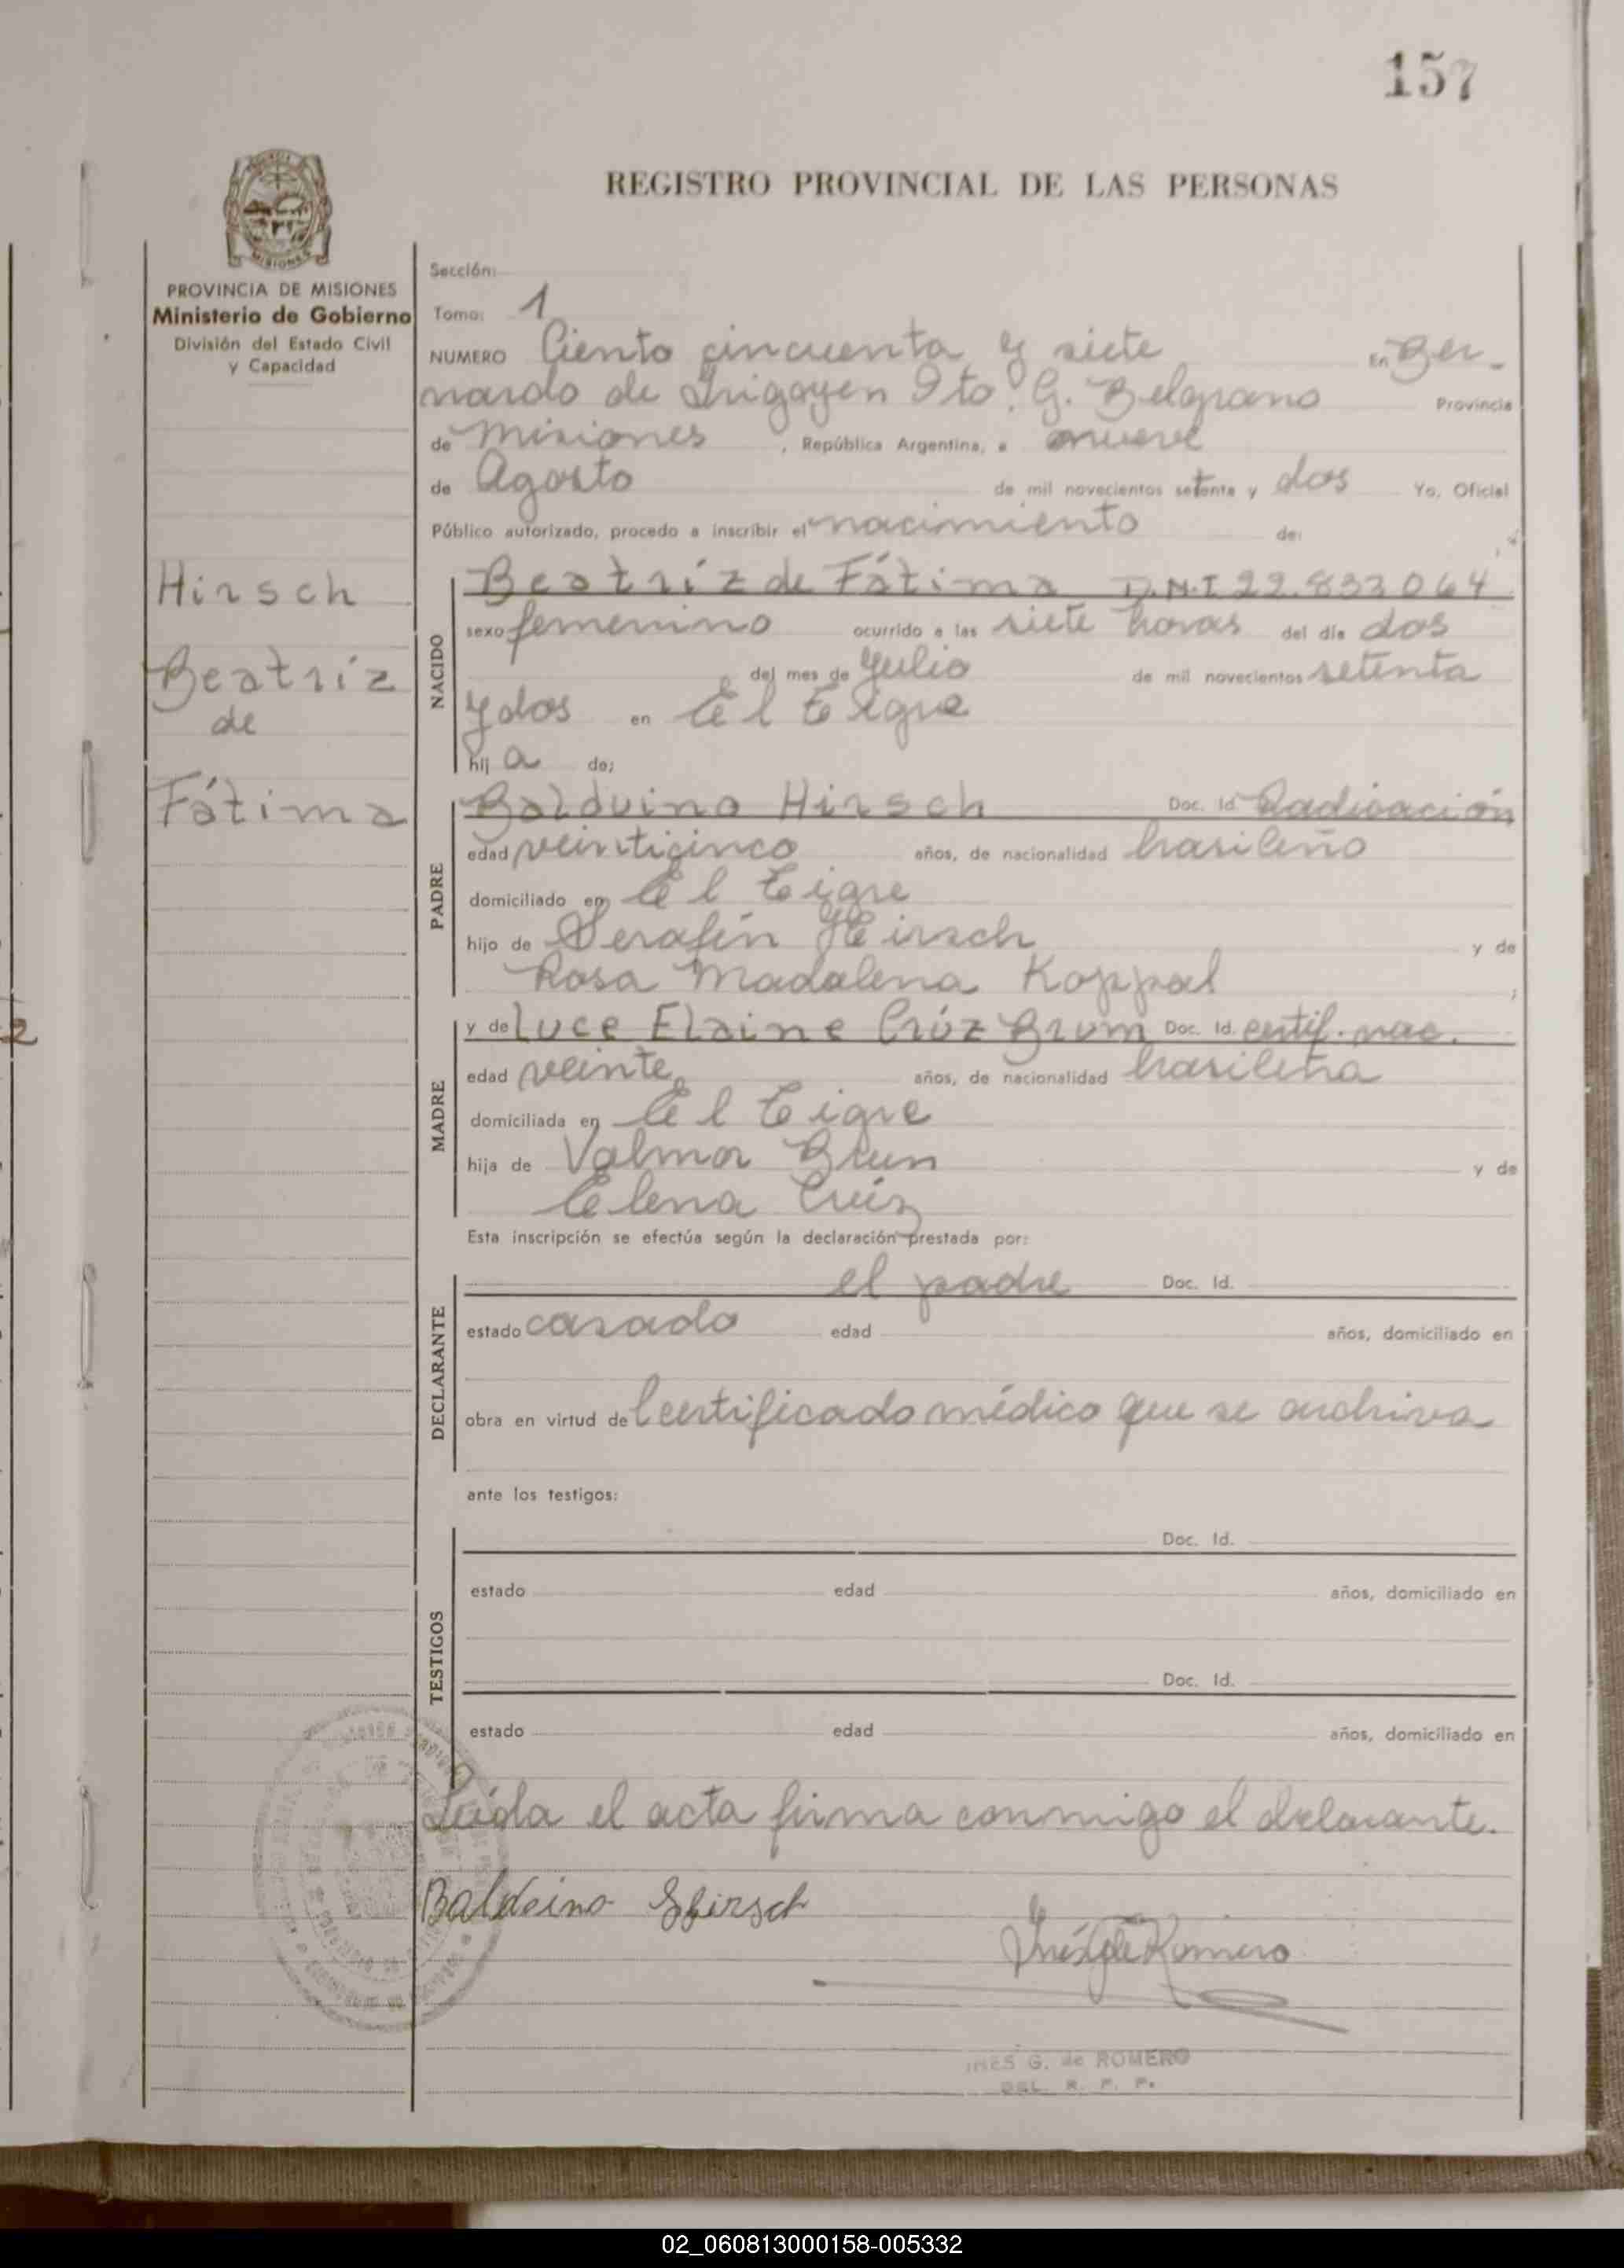 157
REGISTRO PROVINCIAL DE LAS PERSONAS
PROVINCIA DE MISIONES
Ministerio de Gobierno
División del Estado Civil
y Capacidad
Hirsch
Beatríz
de
Fátima
Sección:
Tomo: 1
NUMERO Ciento cincuenta y siete En Ber_
nardo de Irigoyen Dto. G. Belgrano Provincia
de Misiones, República Argentina, a nueve
de Agosto de mil novecientos setenta y dos Yo, Oficial
Público autorizado, procedo a inscribir el nacimiento de:
NACIDO
Beatríz de Fátima D.N.I 22.833064
sexo femenino ocurrido a las siete horas del día dos
del mes de Julio de mil novecientos setenta
y dos en El Tigre
hij a de;
PADRE
Balduino Hirsch Doc. Id. Radicación
edad veinticinco años, de nacionalidad brasileño
domiciliado en El Tigre
hijo de Serafín Hirsch y de
Rosa Madalena Koppal ;
MADRE
y de Luce Elaine Crúz Brum Doc. Id. certif. nac.
edad veinte años, de nacionalidad brasileña
domiciliada en El Tigre
hija de Valmor Brun y de
Elena Crúz
Esta inscripción se efectúa según la declaración prestada por:
DECLARANTE
el padre Doc. Id.
estado casado edad años, domiciliado en
obra en virtud de Certificado médico que se archiva
ante los testigos:
TESTIGOS
Doc. Id.
estado edad años, domiciliado en
Doc. Id.
estado edad años, domiciliado en
Leída el acta firma conmigo el delarante.
Baldoino Hirsch
Inés G de Romero
INES G. de ROMERO
DEL. R. P. P.
02_060813000158-005332